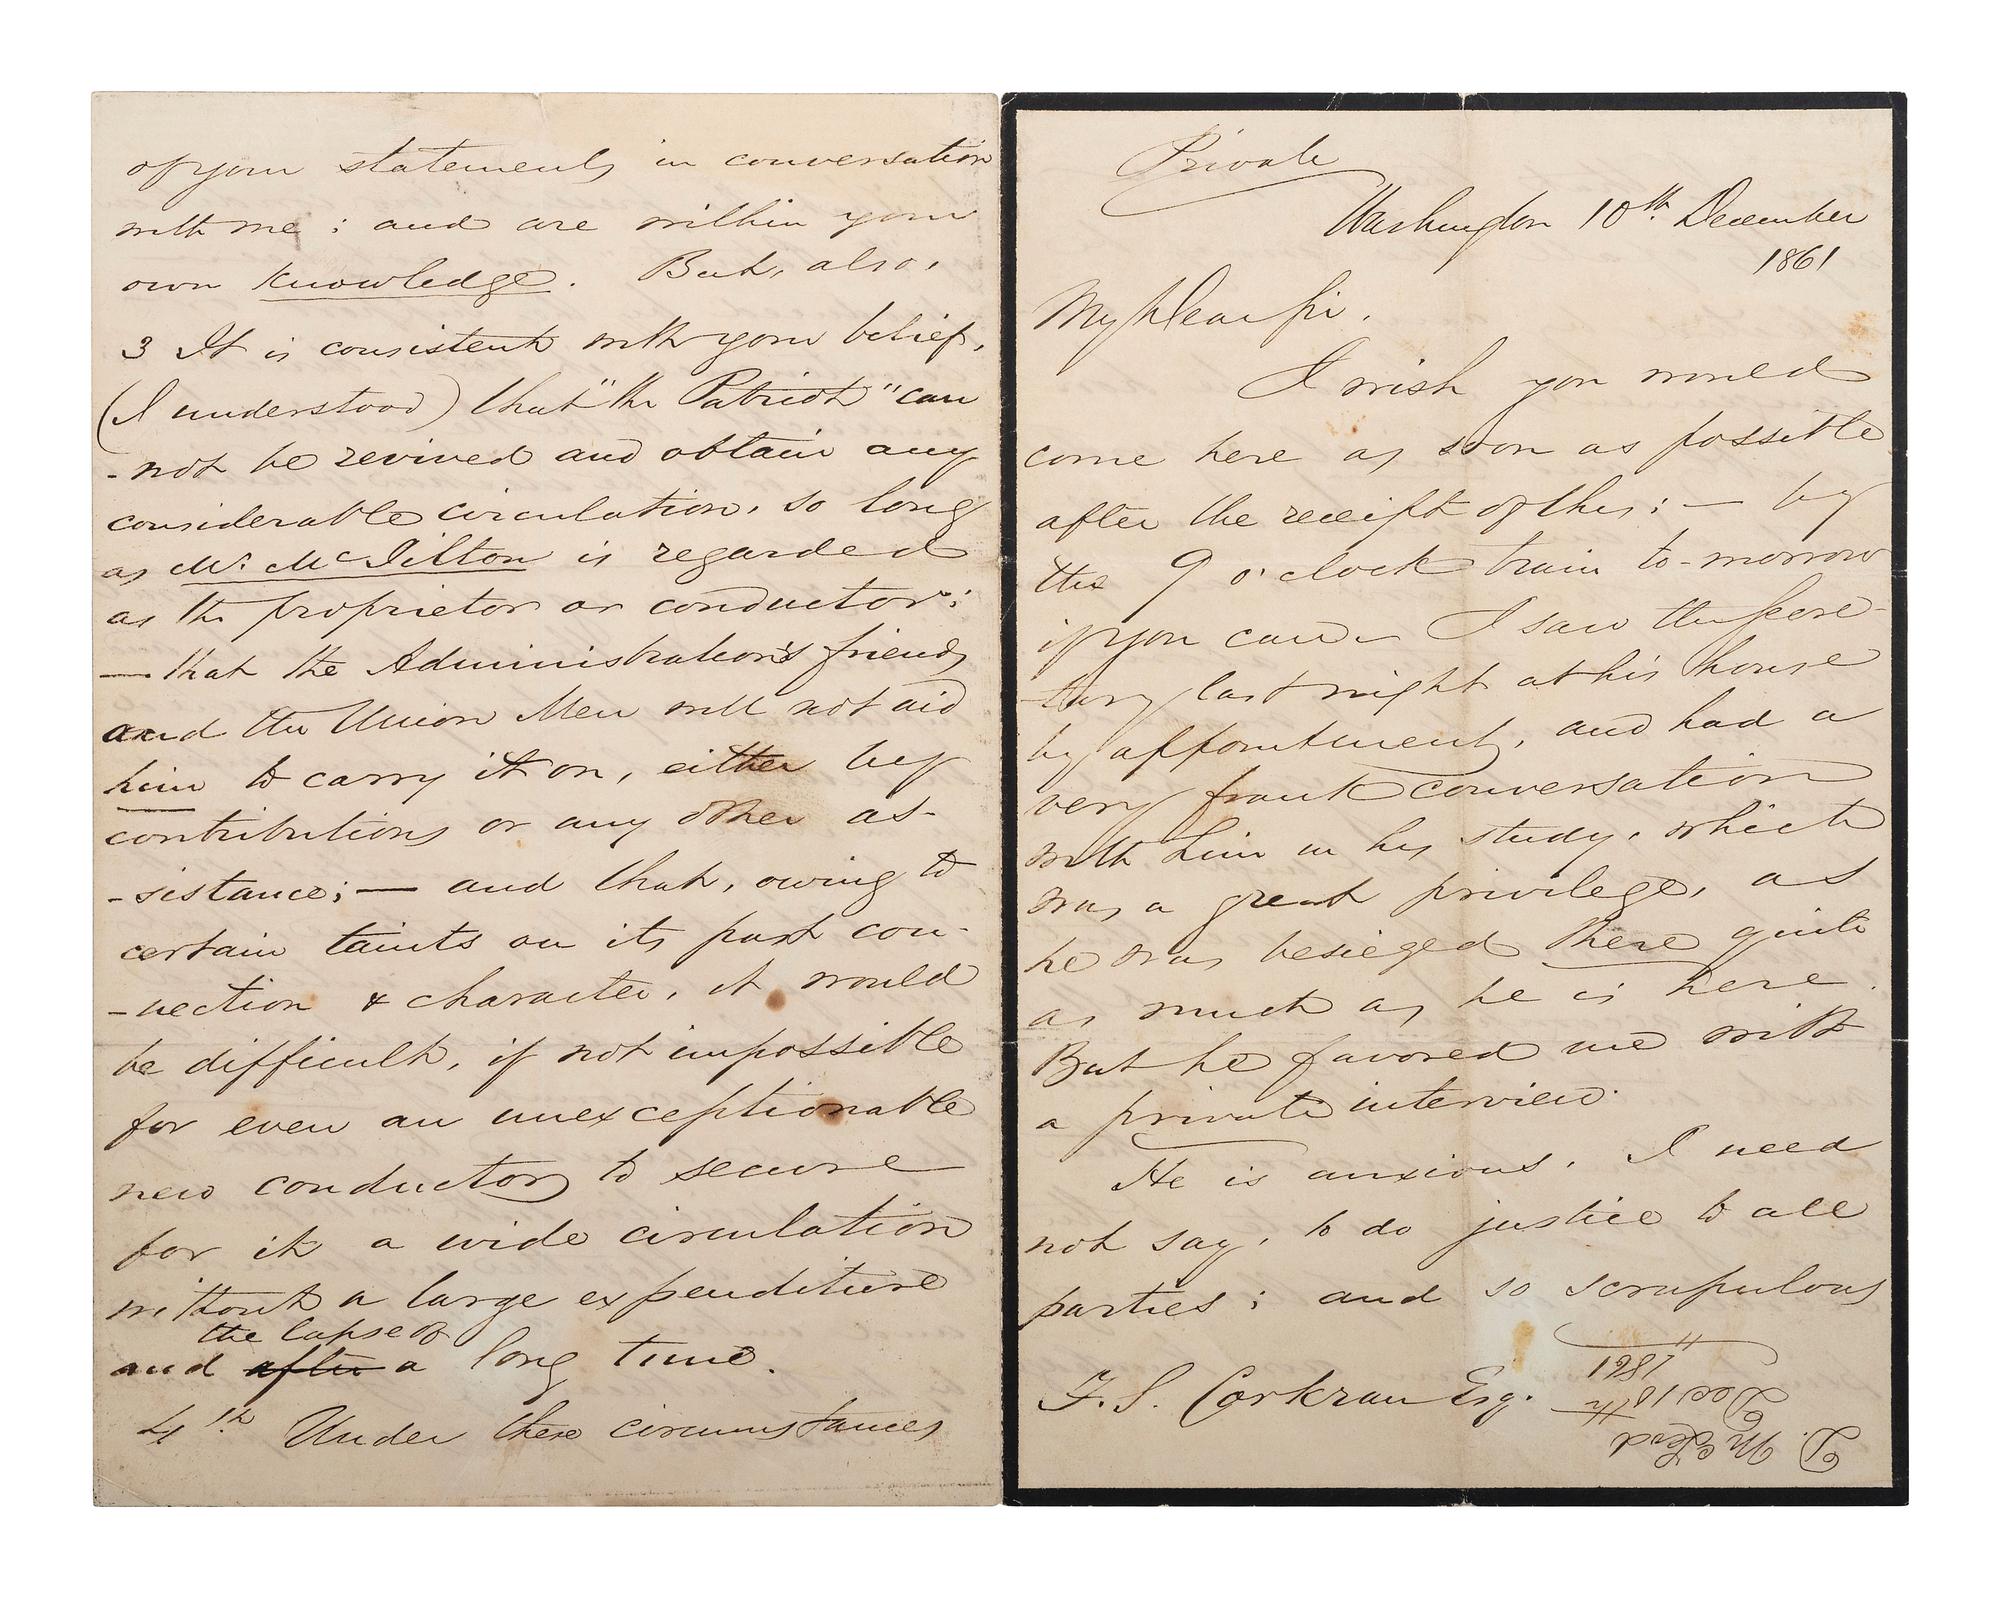 Private
Washington 10th. December
1861
My Dear Sir.
I wish you would
come here as soon as possible
after the receipt of this; — by
the 9 o'clock train to-morrow
if you can. I saw the Secre-
tary last night at his house
by appointment, and had a
very frank conversation
with him in his study, which
was a great privilege, as
he was besieged there quite
as much as he is here.
But he favored me with
a private interview.
He is anxious, I need
not say, to do justice to all
parties; and so scrupulous
F. S. Corkran Esq.
D. McLeod
Dec 10th
1861
of your statements in conversation
with me; and are within your
own knowledge. But, also,
3 It is consistent with your belief,
(I understood) that "the Patriot" can
-not be revived and obtain any
considerable circulation, so long
as Mr. McJilton is regarded
as the proprietor or conductor;
— that the Administration's friends
and the Union Men will not aid
him to carry it on, either by
contributions or any other as-
-sistance; — and that, owing to
certain taints on its past con-
-nection & character, it would
be difficult, if not impossible
for even an unexceptionable
new conductor to secure
for it a wide circulation
without a large expenditure
the lapse of
and after a long time.
4th Under these circumstances